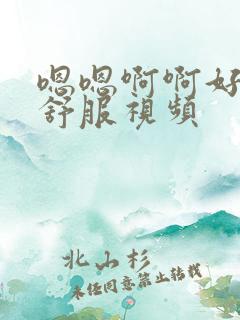 嗯嗯啊啊好
舒服視頻
北山杉
未任同意禁止转载